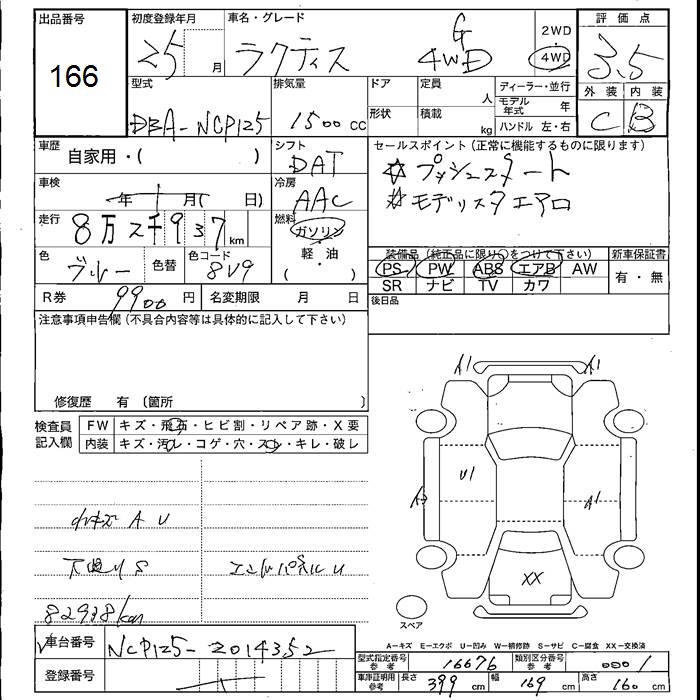 出品番号
166
初度登録年月
25 月
車名・グレード
ラクティス G 4WD
2WD
4WD
評価点
3.5
外装 内装
C B
型式
DBA-NCP125
排気量
1500 cc
ドア
形状
定員
人
積載
kg
ディーラー・並行
モデル年式 年
ハンドル 左・右
車歴 自家用・( )
シフト
DAT
車検 年 月( 日)
冷房
AAC
走行
8万2千937 km
燃料
ガソリン
軽・油
( )
色
ブルー
色替
色コード
8V9
R券 9900 円
名変期限 月 日
セールスポイント(正常に機能するものに限ります)
☆プッシュスタート
☆モデリスタエアロ
装備品(純正品に限り○をつけて下さい)
PS PW ABS エアB AW
SR ナビ TV カワ
新車保証書
有・無
後日品
注意事項申告欄(不具合内容等は具体的に記入して下さい)
修復歴 有 〔箇所 〕
検査員
記入欄
FW キズ・飛石・ヒビ割・リペア跡・X要
内装 キズ・汚レ・コゲ・穴・スレ・キレ・破レ
小キズ A U
下廻り S
エンドパネル U
82938km
A1
A1
U1
A2
A1
XX
スペア
A-キズ E-エクボ U-凹み W-補修跡 S-サビ C-腐食 XX-交換済
車台番号 NCP125-2014352
登録番号
型式指定番号 参考 16676
類別区分番号 参考 0001
車庫証明用 参考 長さ 399 cm 幅 169 cm 高さ 160 cm